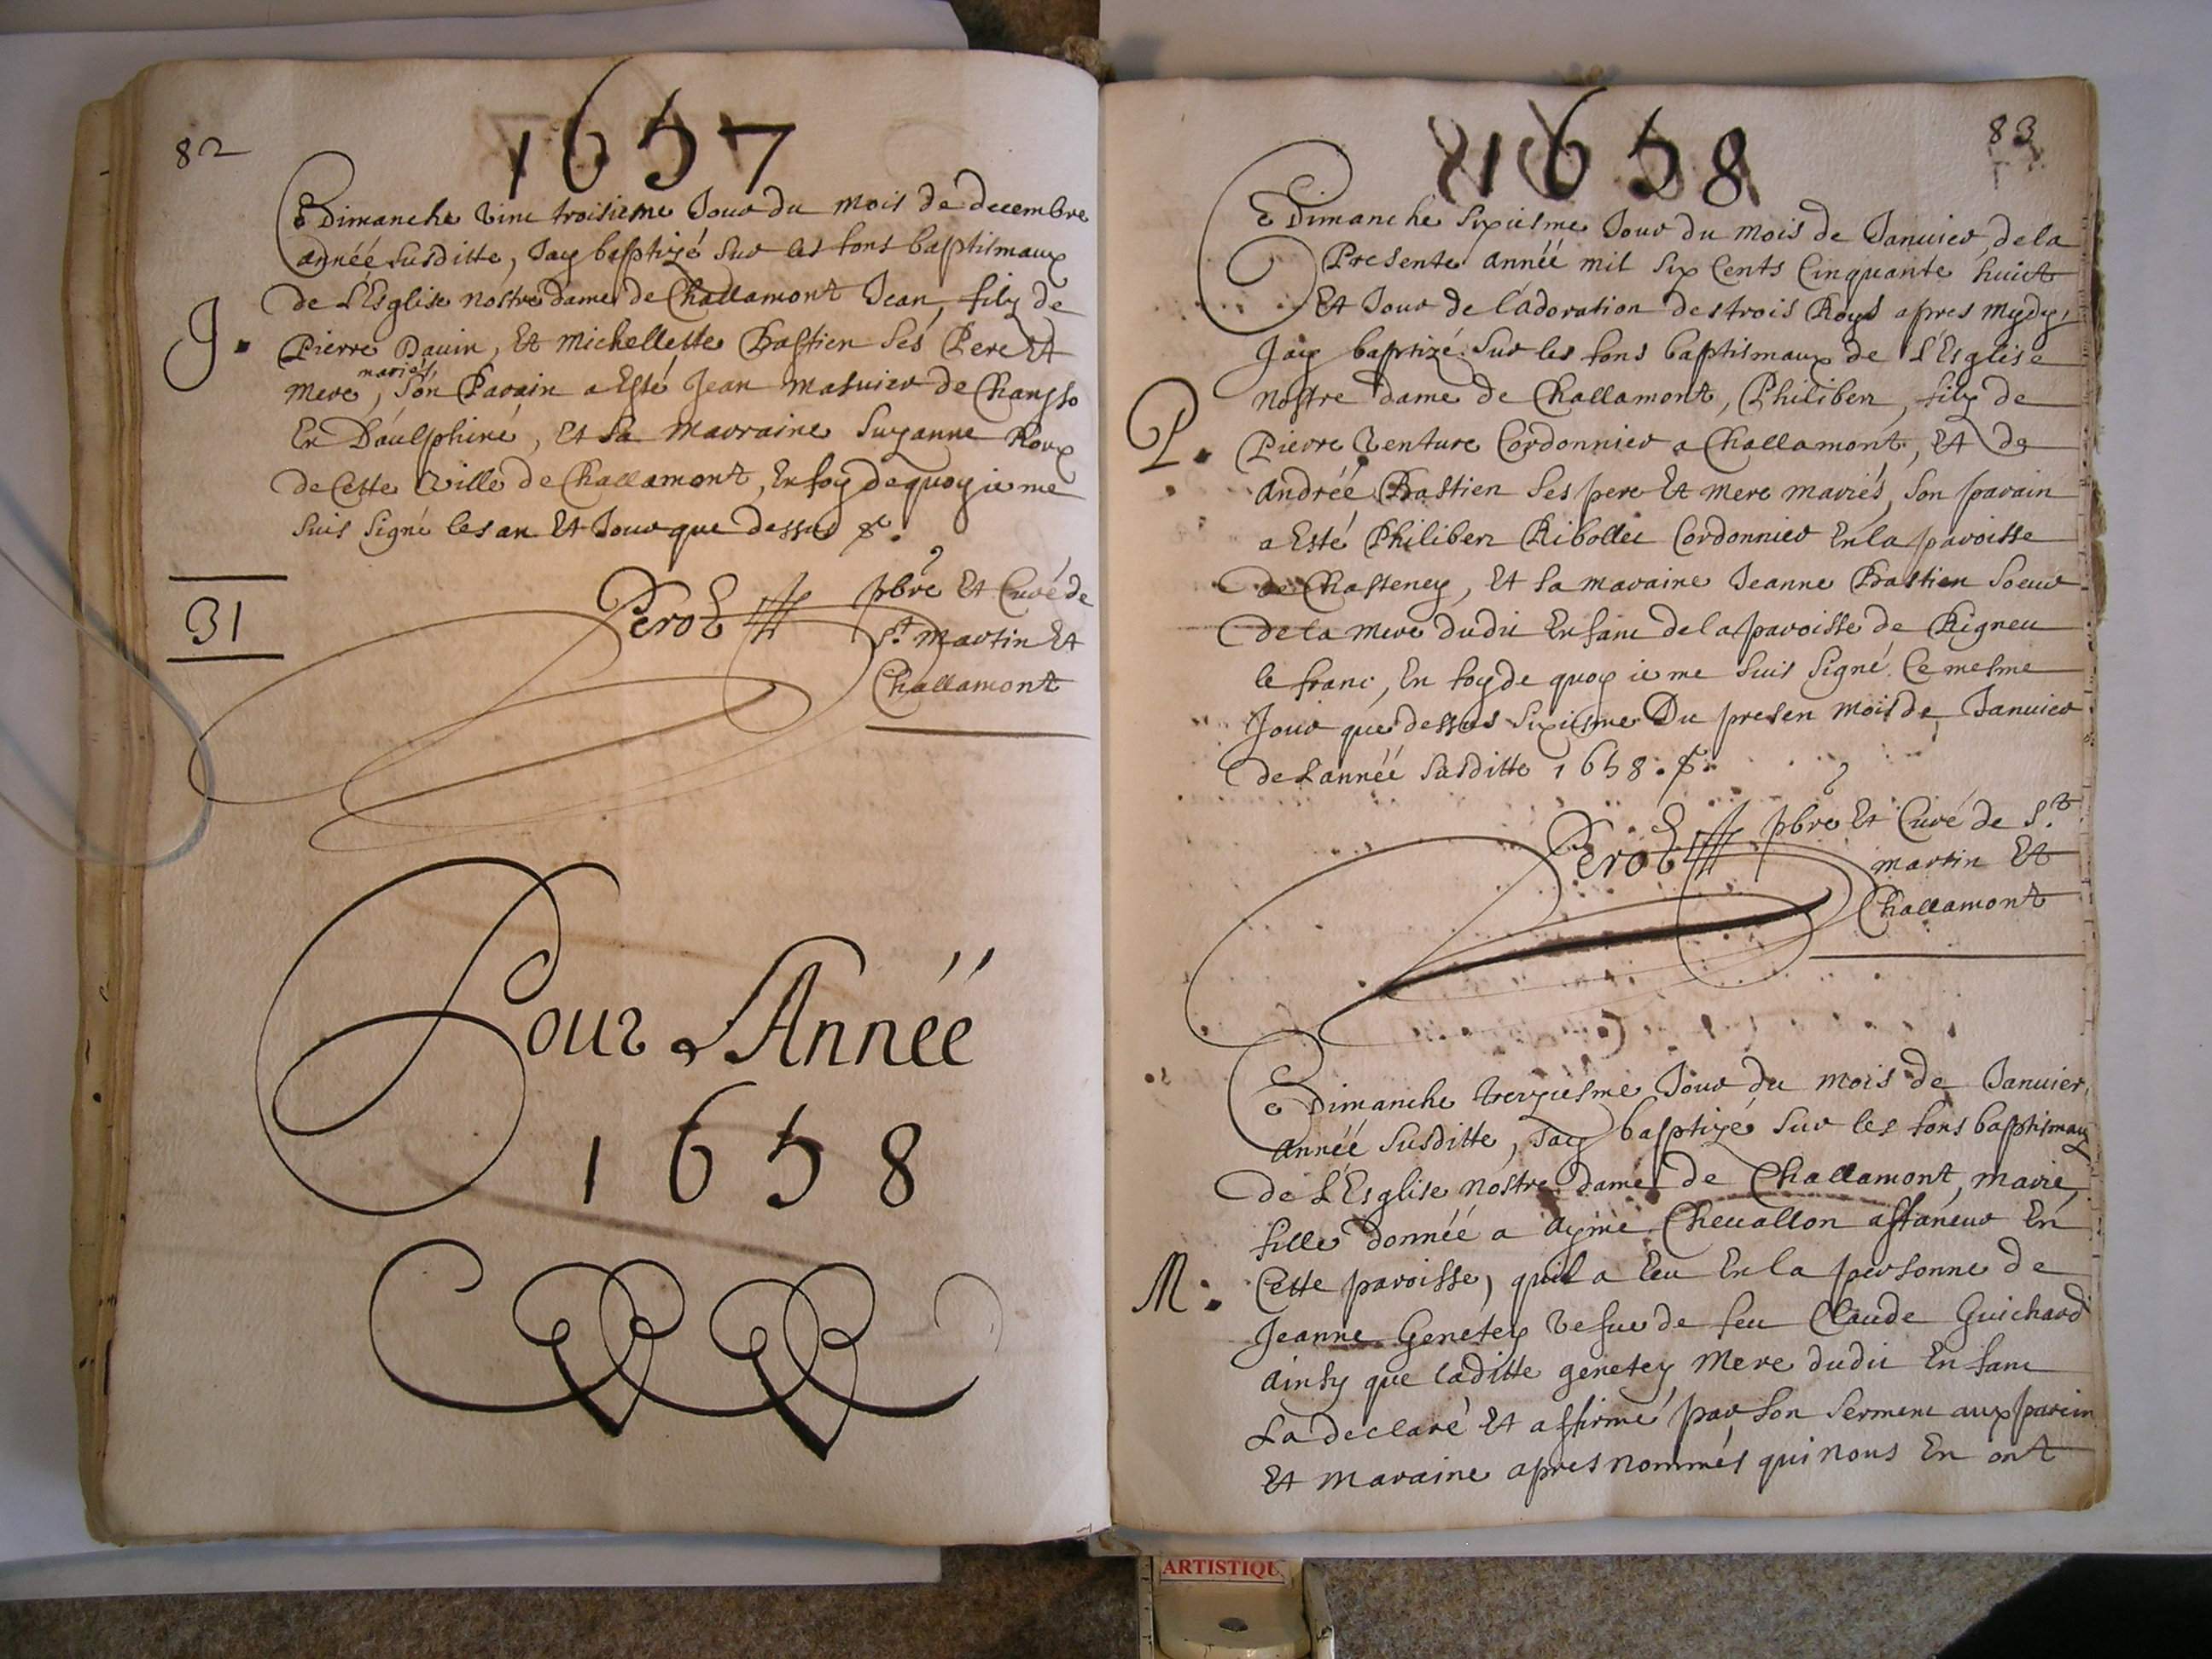 82
1657
Ce Dimanche vint troisieme Jour du mois de decembre
année susditte, Jay baptizé sur les fons baptismaux
de L'Esglise nostre dame de Challamont Jean, filz de
J.
Pierre Dauin, Et Michellette Bastien ses Pere Et
mariés
mere, son Parain a Esté Jean masuier de
En Daulphiné, Et sa marraine Suzanne Roux
de Cette Ville de Challamont, En foy de quoy ie me
suis signé les an Et Jour que dessus &c.
31
Perot pbre Et Curé de
St. Martin Et
Challamont
Pour L'Année
1658
83
1658
Ce Dimanche sixiesme Jour du mois de Januier, de la
Presente année mil six Cents Cinquante huict
Et Jour de l'adoration des trois Roys apres mydy,
Jay baptizé sur les fons baptismaux de L'Esglise
nostre dame de Challamont, Philiber, filz de
P.
Pierre Venture Cordonnier a Challamont, Et de
andréé Bastien ses pere Et mere mariés, son parain
a Esté Philiber Ribollet Cordonnier En la paroisse
de Chasteney, Et sa maraine Jeanne Bastien soeur
de la mere dudit Enfant de la paroisse de Rigneu
le franc, En foy de quoy ie me suis signé Ce mesme
Jour que dessus sixiesme Du presen mois de Januier
de L'année susditte 1658. &.
Perot pbre Et Curé de St.
martin Et
Challamont
Ce Dimanche treiziesme Jour du mois de Januier,
année susditte, Jay baptizé sur les fons baptismaux
de L'Esglise nostre dame de Challamont, marie,
fille donnéé a aymé Cheuallon affaneur En
M.
Cette paroisse, quil a Eeu En la personne de
Jeanne Genetey vefue de feu Claude Guichard
ainsy que laditte genetey mere dudit Enfant
La declaré Et affirmé par son serment aux parein
Et maraine apres nommés qui nous En ont
ARTISTIQU